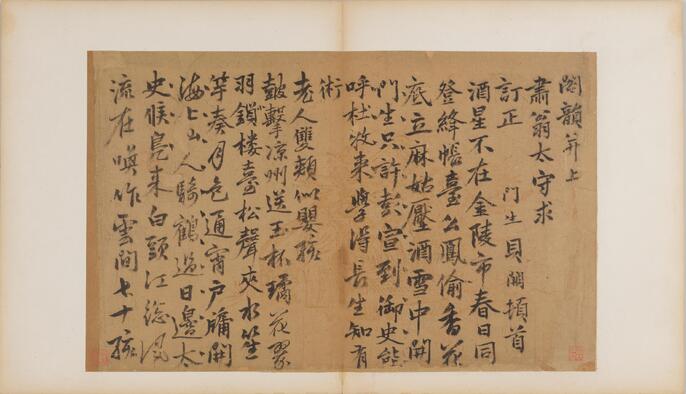 闕韻并上
肅翁太守求
訂正
門生貝闕頓首
酒星不在金陵市春日同
登絳帳臺么鳳偷香花
底立麻姑壓酒雪中開
門生只許彭宣到御史能
呼杜牧來學得長生知有
術
老人雙頰似嬰孩
鼓擊涼州送玉杯璚花翠
羽鎖樓臺松聲夾水笙
竽奏月色通宵戶牖開
海上山人騎鶴過日邊太
史候鳧來白頭江總風
流在喚作雲間七十孩